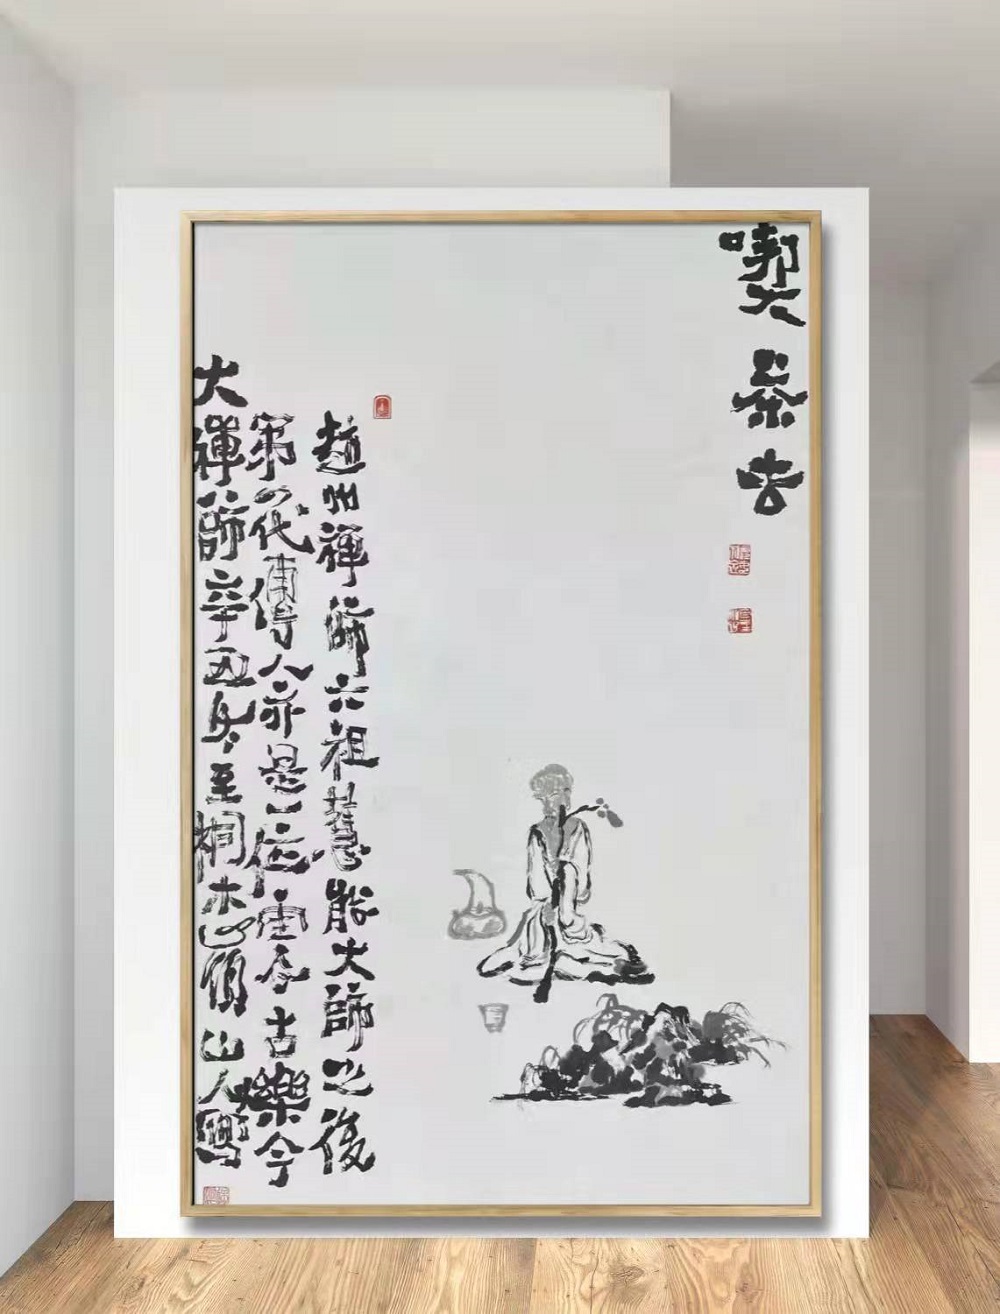 喫茶去
趙州禅師六祖慧能大師之後
第四代傳人亦是一位震爍古樂今
大禅師辛丑冬至桐木山領山人寫